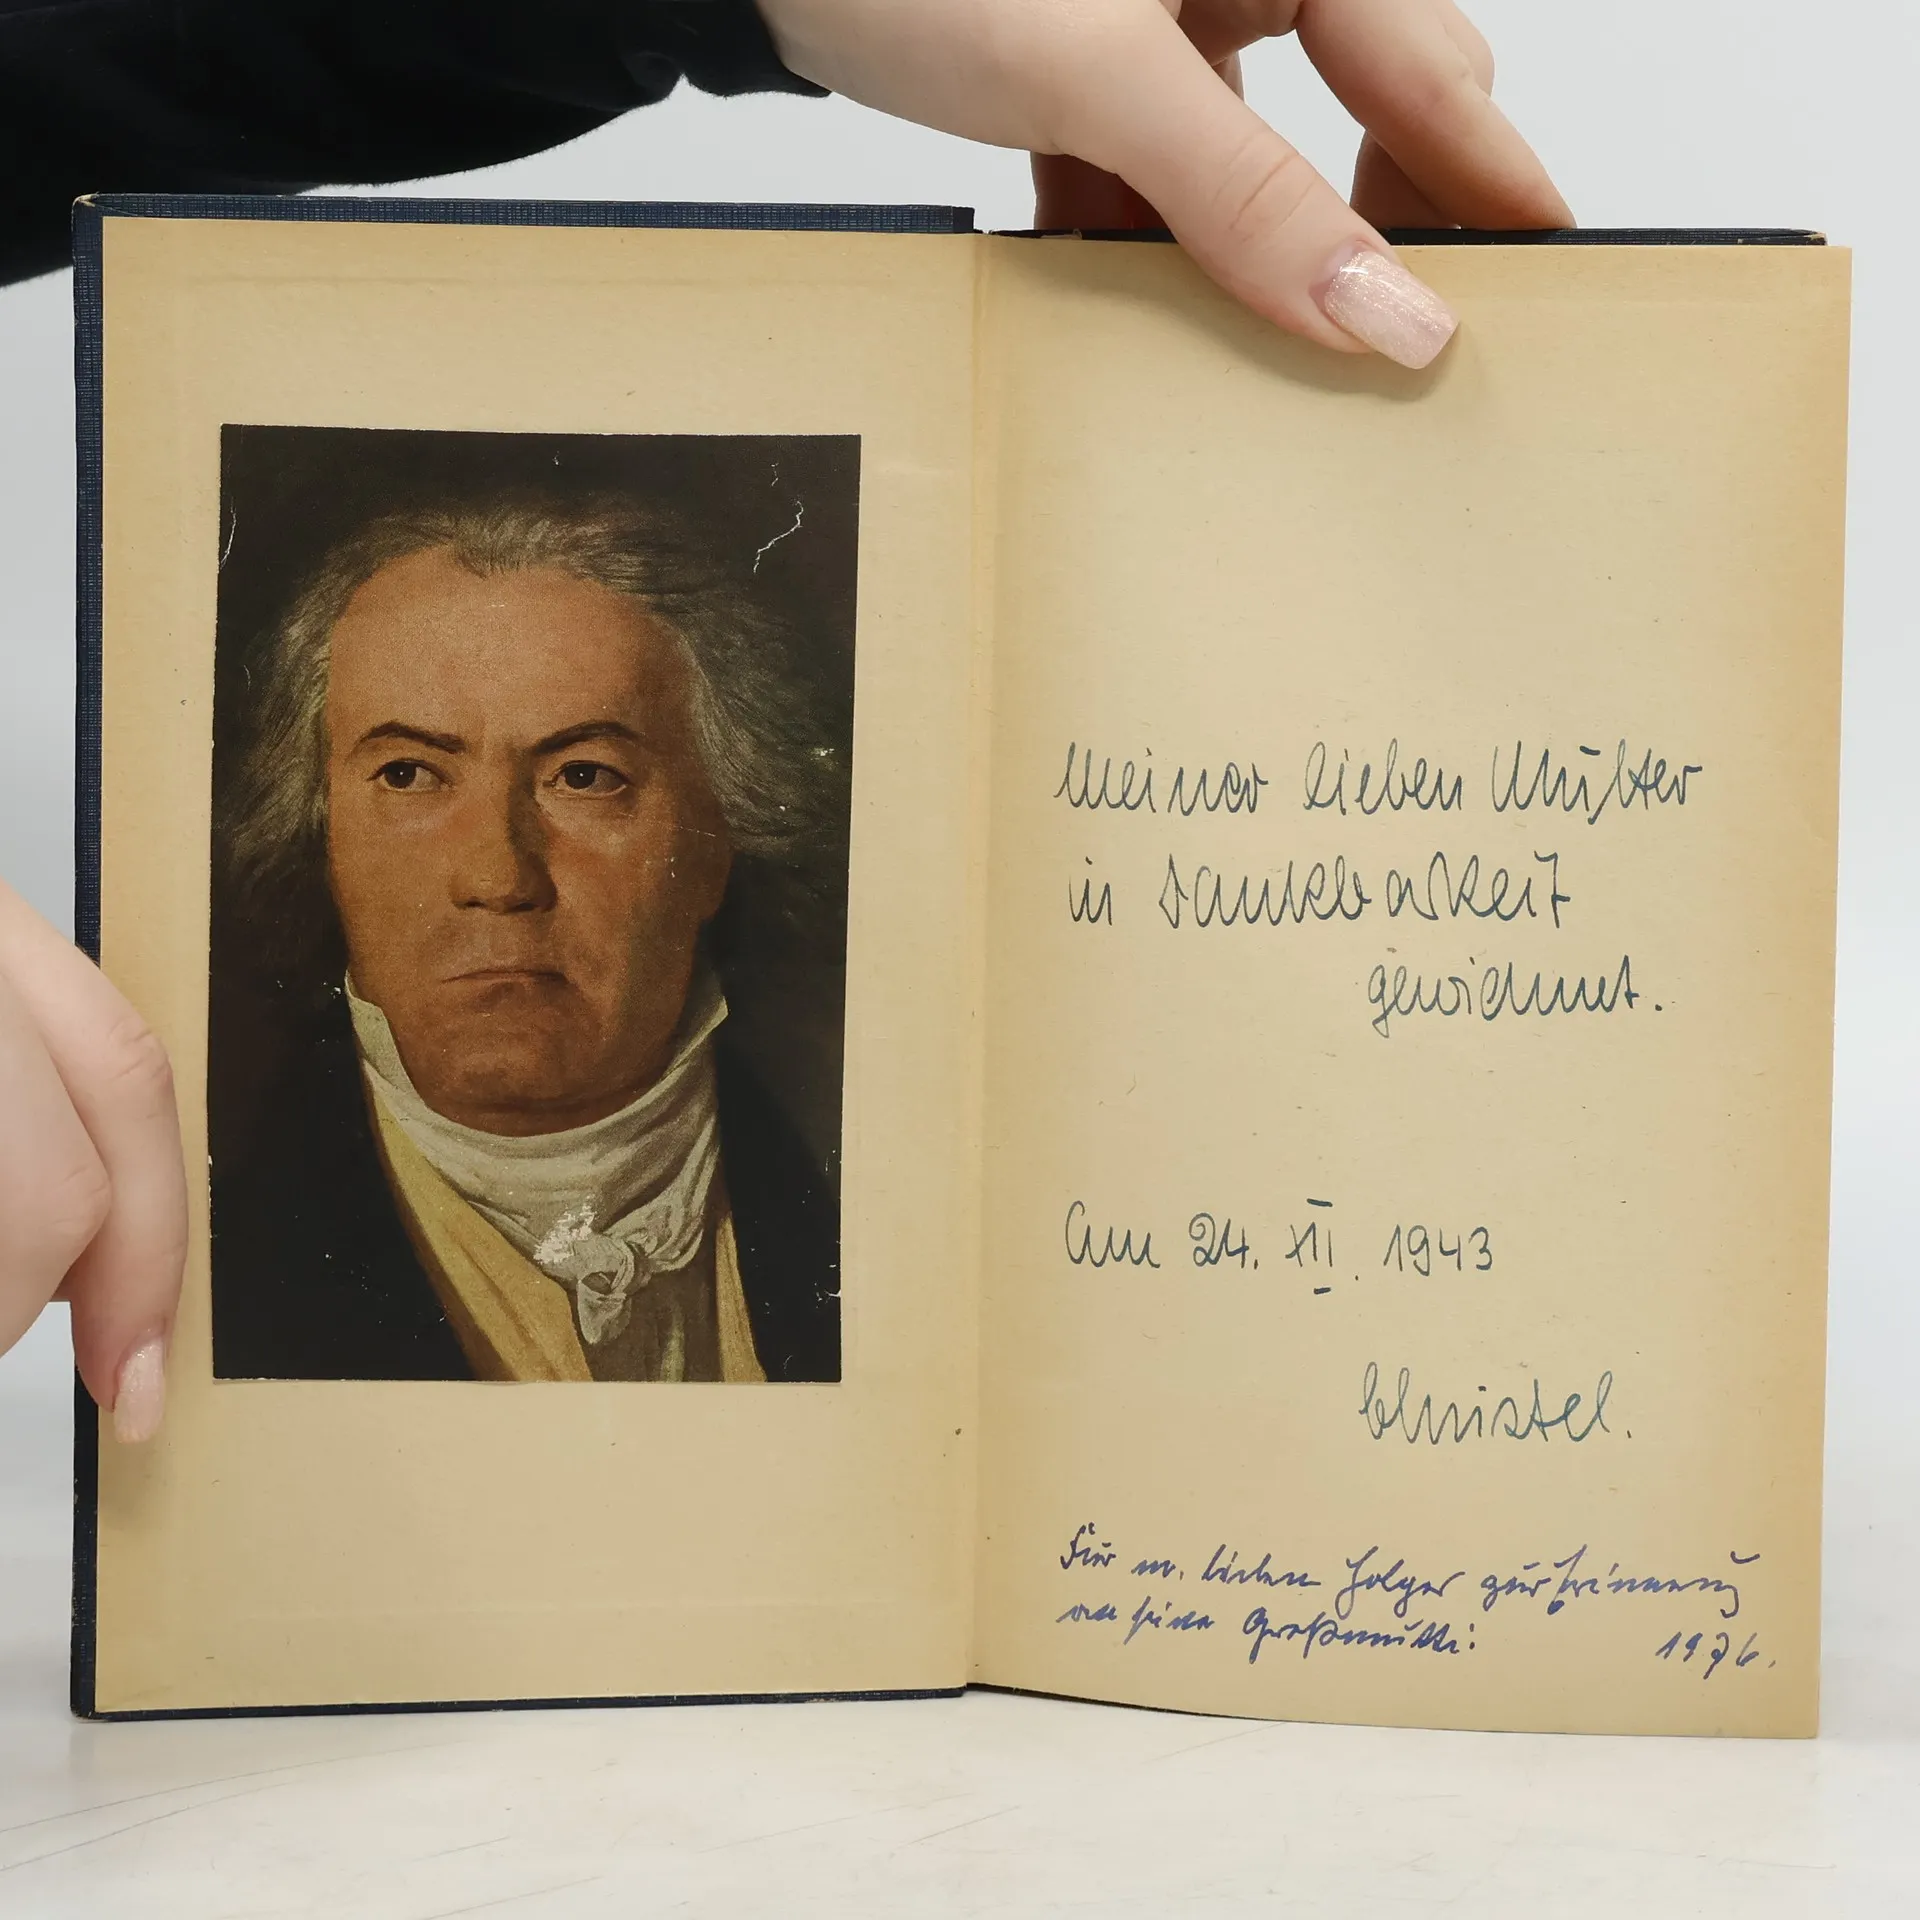 Meiner lieben Mutter
in Dankbarkeit
gewidmet.
Am 24. XII. 1943
Christel.
Für m. lieben Holger zur Erinnerung
an seine Großmutti.
1976.